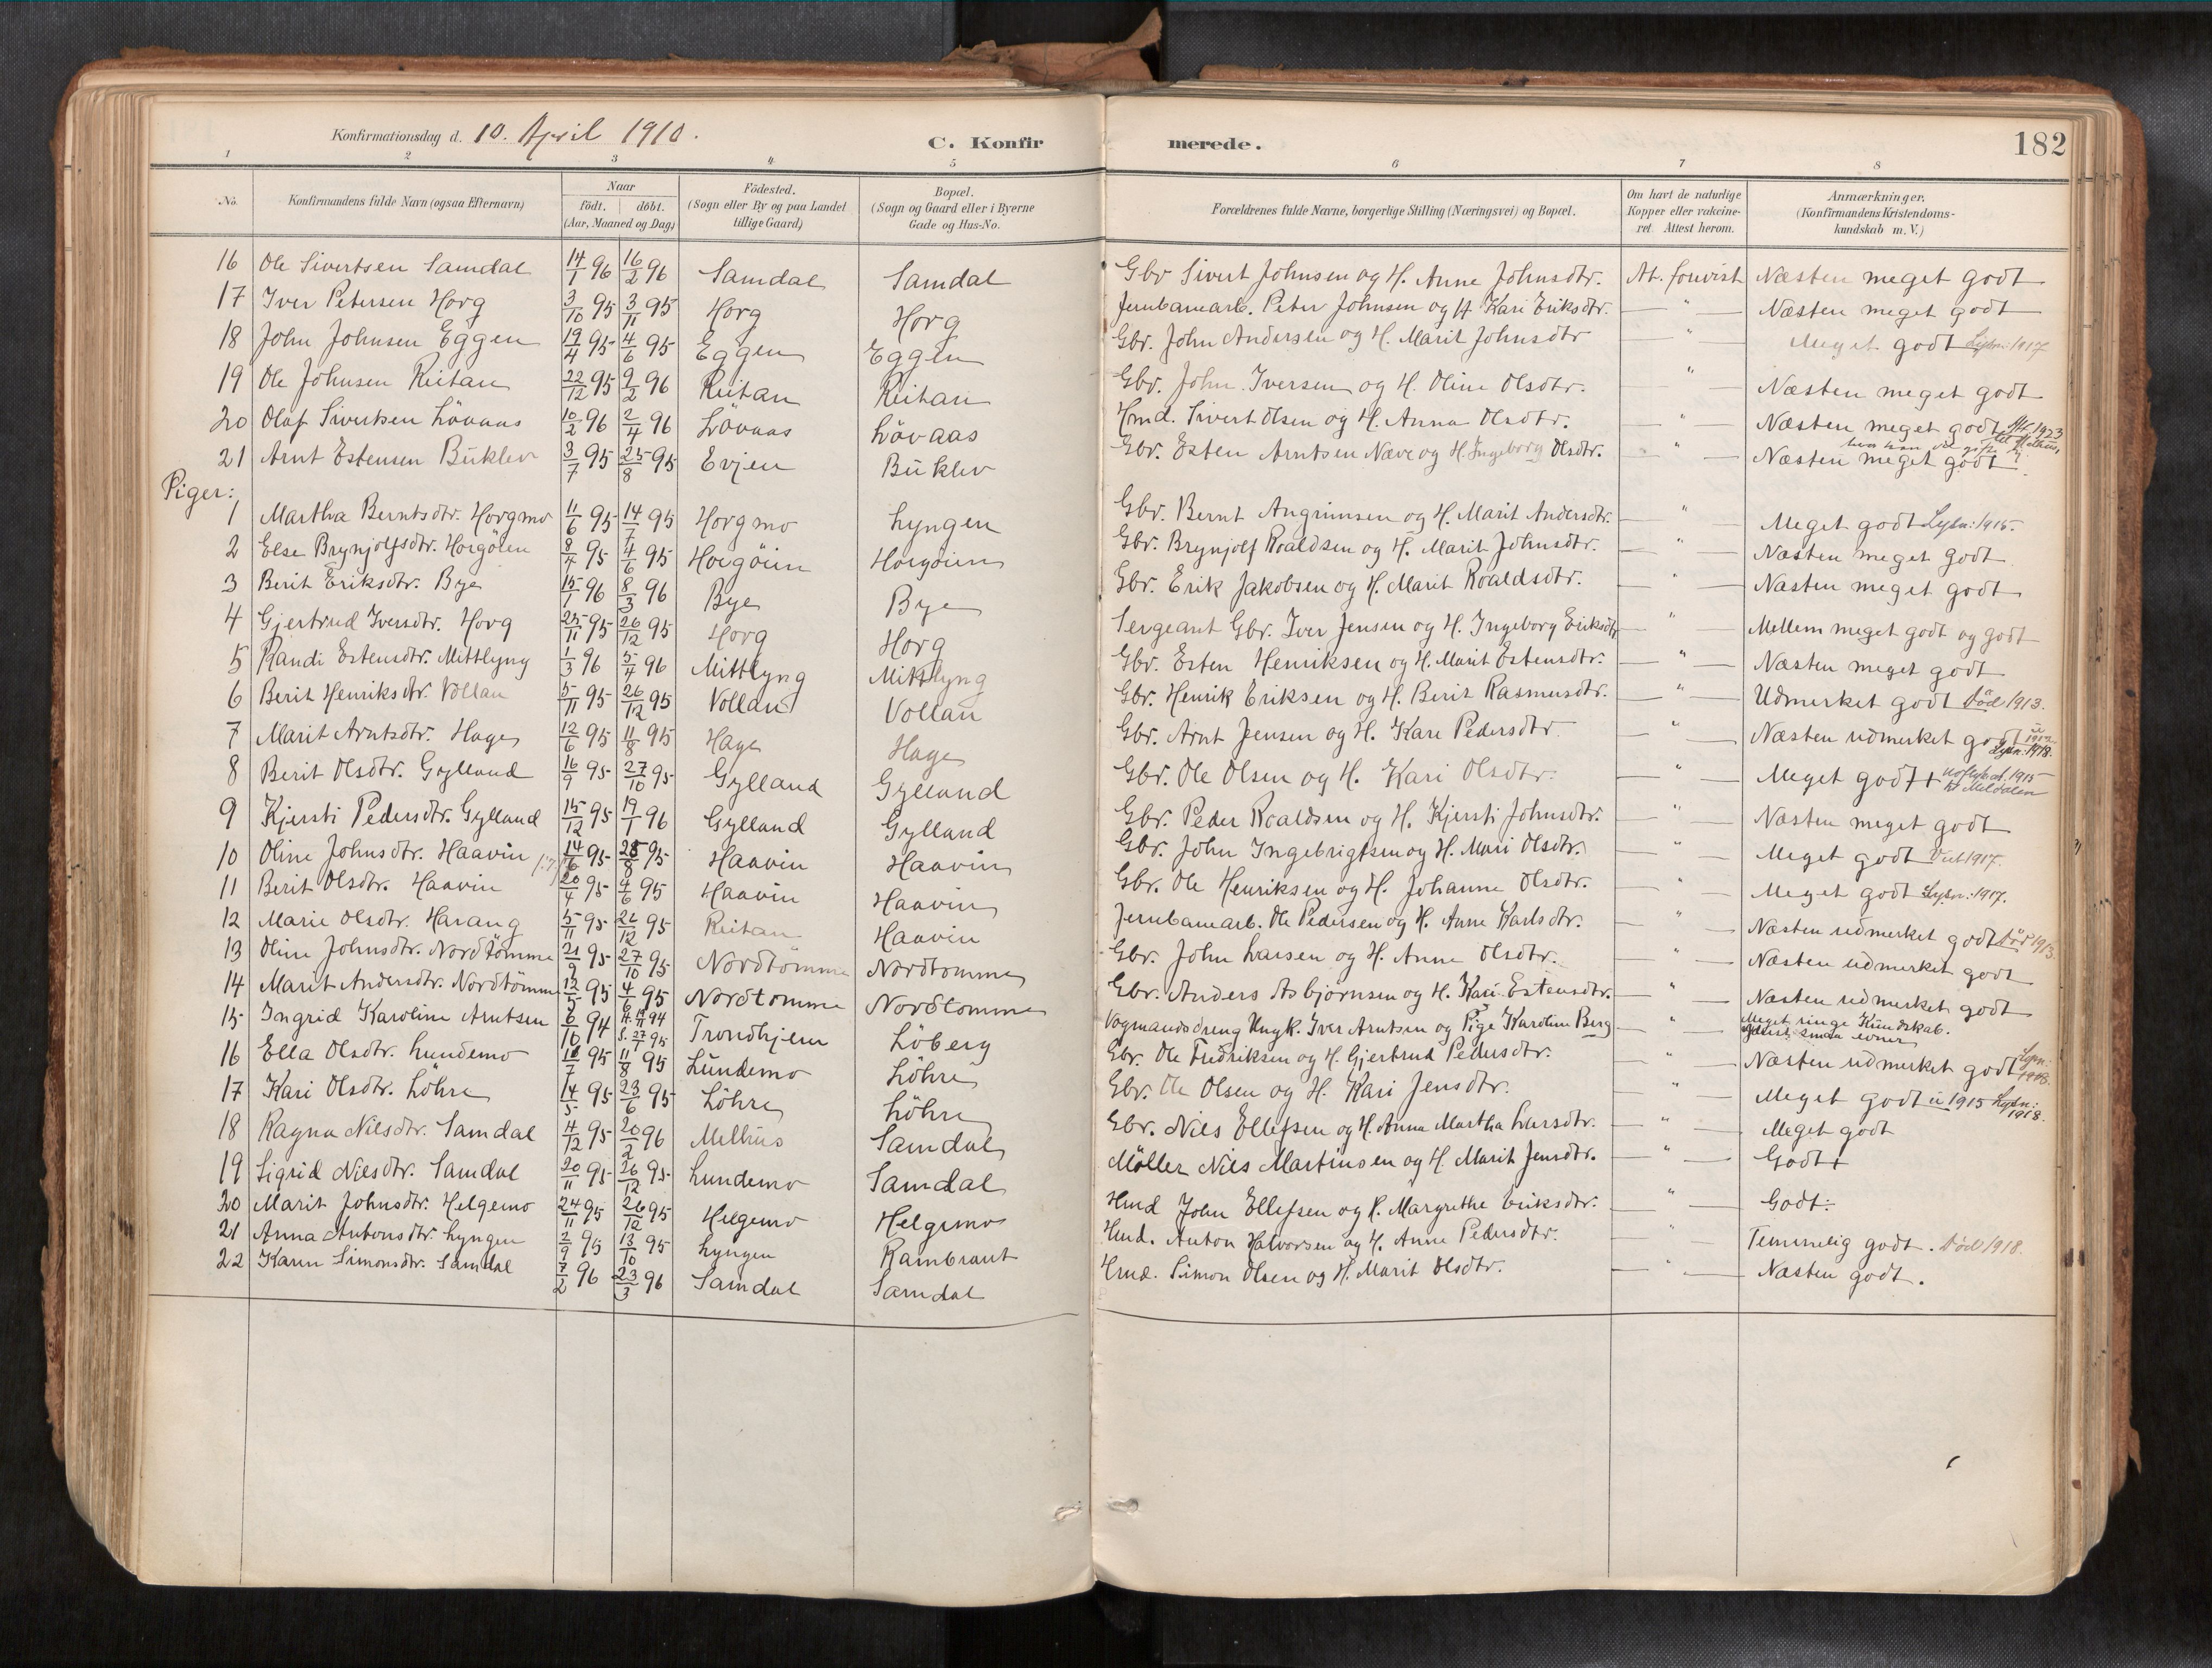 Konfirmationsdag d. 10. April 1910. C. Konfirmerede. 182
1 2 3 4 5 6 7 8
No. Konfirmandens fulde Navn (ogsaa Efternavn) Naar født. døbt. (Aar, Maaned og Dag) Fødested. (Sogn eller By og paa Landet tillige Gaard) Bopæl. (Sogn og Gaard eller i Byerne Gade og Hus-No. Forældrenes fulde Navne, borgerlige Stilling (Næringsvei) og Bopæl. Om havt de naturlige Kopper eller vakcineret. Attest herom. Anmærkninger. (Konfirmandens Kristendomskundskab m. V.)
16 Ole Sivertsen Samdal 14/1 96 16/2 96 Samdal Samdal Gbr Sivert Johnsen og H. Anne Johnsdtr. At. forevist Næsten meget godt
17 Iver Petersen Horg 3/10 95 3/11 95 Horg Horg Jernbanearb. Peter Johnsen og H Kari Eriksdtr. — " — Næsten meget godt
18 John Johnsen Eggen 19/4 95 4/6 95 Eggen Eggen Gbr. John Andersen og H. Marit Johnsdtr. — " — Meget godt Lysn: 1917
19 Ole Johnsen Reitan 22/12 95 9/2 96 Reitan Reitan Gbr. John Iversen og H. Oline Olsdtr. — " — Næsten meget godt
20 Olaf Sivertsen Løvaas 10/2 96 2/4 96 Løvaas Løvaas Hmd. Sivert Olsen og H. Anna Olsdtr. — " — Næsten meget godt Att. 1923
21 Arnt Estensen Buklev 3/7 95 25/8 95 Evjen Buklev Gbr. Esten Arntsen Næve og H. Ingeborg Olsdtr. — " — Næsten meget godt
Piger:
1 Martha Berntsdtr. Horgmo 11/6 95 14/7 95 Horgmo Lyngen Gbr. Bernt Angrimsen og H. Marit Andersdtr. — " — Meget godt Lysn: 1915.
2 Else Brynjolfsdtr. Horgøien 8/4 95 4/6 95 Horgøien Horgøien Gbr. Brynjolf Roaldsen og H. Marit Johnsdtr. — " — Næsten meget godt
3 Berit Eriksdtr. Bye 15/1 96 8/3 96 Bye Bye Gbr. Erik Jakobsen og H. Marit Roaldsdtr. — " — Næsten meget godt
4 Gjertrud Iversdtr. Horg 25/11 95 26/12 95 Horg Horg Sergeant Gbr. Iver Jensen og H. Ingeborg Eriksdtr — " — Mellem meget godt og godt
5 Randi Estensdtr. Mittlyng 1/3 96 5/4 96 Mittlyng Mittlyng Gbr. Esten Henriksen og H. Marit Estensdtr. — " — Næsten meget godt
6 Berit Henriksdtr. Vollan 5/11 95 26/12 95 Vollan Vollan Gbr. Henrik Eriksen og H. Berit Rasmusdtr. — " — Udmerket godt Død 1913.
7 Marit Arntsdtr. Hage 12/6 95 11/8 95 Hage Hage Gbr. Arnt Jensen og H. Kari Pedersdtr — " — Næsten udmerket godt u 1912 Lysn: 1918.
8 Berit Olsdtr. Gylland 16/9 95 27/10 95 Gylland Gylland Gbr. Ole Olsen og H. Kari Olsdtr. — " — Meget godt + 1915 til Meldalen
9 Kjersti Pedersdtr. Gylland 15/12 95 19/1 96 Gylland Gylland Gbr. Peder Roaldsen og H. Kjersti Johnsdtr. — " — Næsten meget godt
10 Oline Johnsdtr. Haavin 14/6 95 25/8 95 Haavin Haavin Gbr. John Ingebrigtsen og H. Mari Olsdtr. — " — Meget godt 1917.
11 Berit Olsdtr. Haavin 20/4 95 4/6 95 Haavin Haavin Gbr. Ole Henriksen og H. Johanne Olsdtr. — " — Meget godt Lysn: 1917.
12 Marie Olsdtr. Harang 5/11 95 26/12 95 Reitan Haavin Jernbanearb. Ole Pedersen og H. Anne Karlsdtr. — " — Næsten udmerket godt Død 1913
13 Oline Johnsdtr. Nordtømme 21/9 95 27/10 95 Nordtømme Nordtømme Gbr. John Larsen og H. Anne Olsdtr. — " — Næsten udmerket godt
14 Marit Andersdtr. Nordtømme 12/5 95 4/6 95 Nordtomme Nordtomme Gbr. Anders Asbjørnsen og H. Kari Estensdtr. — " — Næsten udmerket godt
15 Ingrid Karoline Arntsen 6/10 94 Trondhjem Løberg Vognmandsdreng Ungk. Iver Arntsen og Pige Karoline Berg — " — Meget ringe Kundskab. smaa evner
16 Ella Olsdtr. Lundemo 18/7 95 11/8 95 Lundemo Løhre Gbr. Ole Fredriksen og H. Gjertrud Pedersdtr. — " — Næsten udmerket godt Lysn: 1918.
17 Kari Olsdtr. Løhre 14/5 95 23/6 95 Løhre Løhre Gbr. Ole Olsen og H. Kari Jensdtr. — " — Meget godt u 1915 Lysn: 1918.
18 Ragna Nilsdtr. Samdal 4/12 95 20/2 96 Melhus Samdal Gbr. Nils Ellefsen og H. Anna Martha Larsdtr. — " — Meget godt
19 Sigrid Nilsdtr. Samdal 20/11 95 26/12 95 Lundemo Samdal Møller Nils Martinsen og H. Marit Jensdtr. — " — Godt +
20 Marit Johnsdtr. Helgemo 24/11 95 26/12 95 Helgemo Helgemo Hmd John Ellefsen og H. Margrethe Eriksdtr. — " — Godt ÷
21 Anna Antonsdtr. Lyngen 2/9 95 13/10 95 Lyngen Rambraut Hmd. Anton Halvorsen og H. Anne Pedersdtr. — " — Temmelig godt. Død 1918.
22 Karen Simonsdtr. Samdal 7/2 96 23/3 96 Samdal Samdal Hmd. Simon Olsen og H. Marit Olsdtr. — " — Næsten godt.